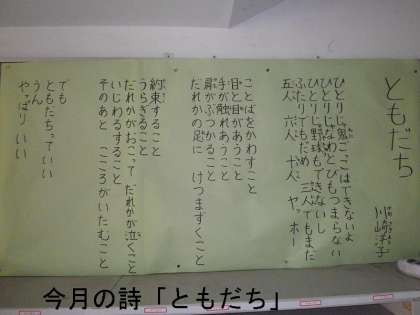 ともだち
川崎洋子
ひとりで鬼ごっこはできないよ
ひとりでなわとびもつまらない
ひとりで野球もできないし
ふたりでもだめ 三人でもまだ
五人 六人 十人 ヤッホー
ことばをかわすこと
目と目があうこと
手が触れあうこと
肩がぶつかること
だれかの足に けつまずくこと
約束すること
うらぎること
だれかがおこって だれかが泣くこと
いじわるすること
そのあと こころがいたむこと
でも
ともだちっていい
うん
やっぱり いい
今月の詩「ともだち」